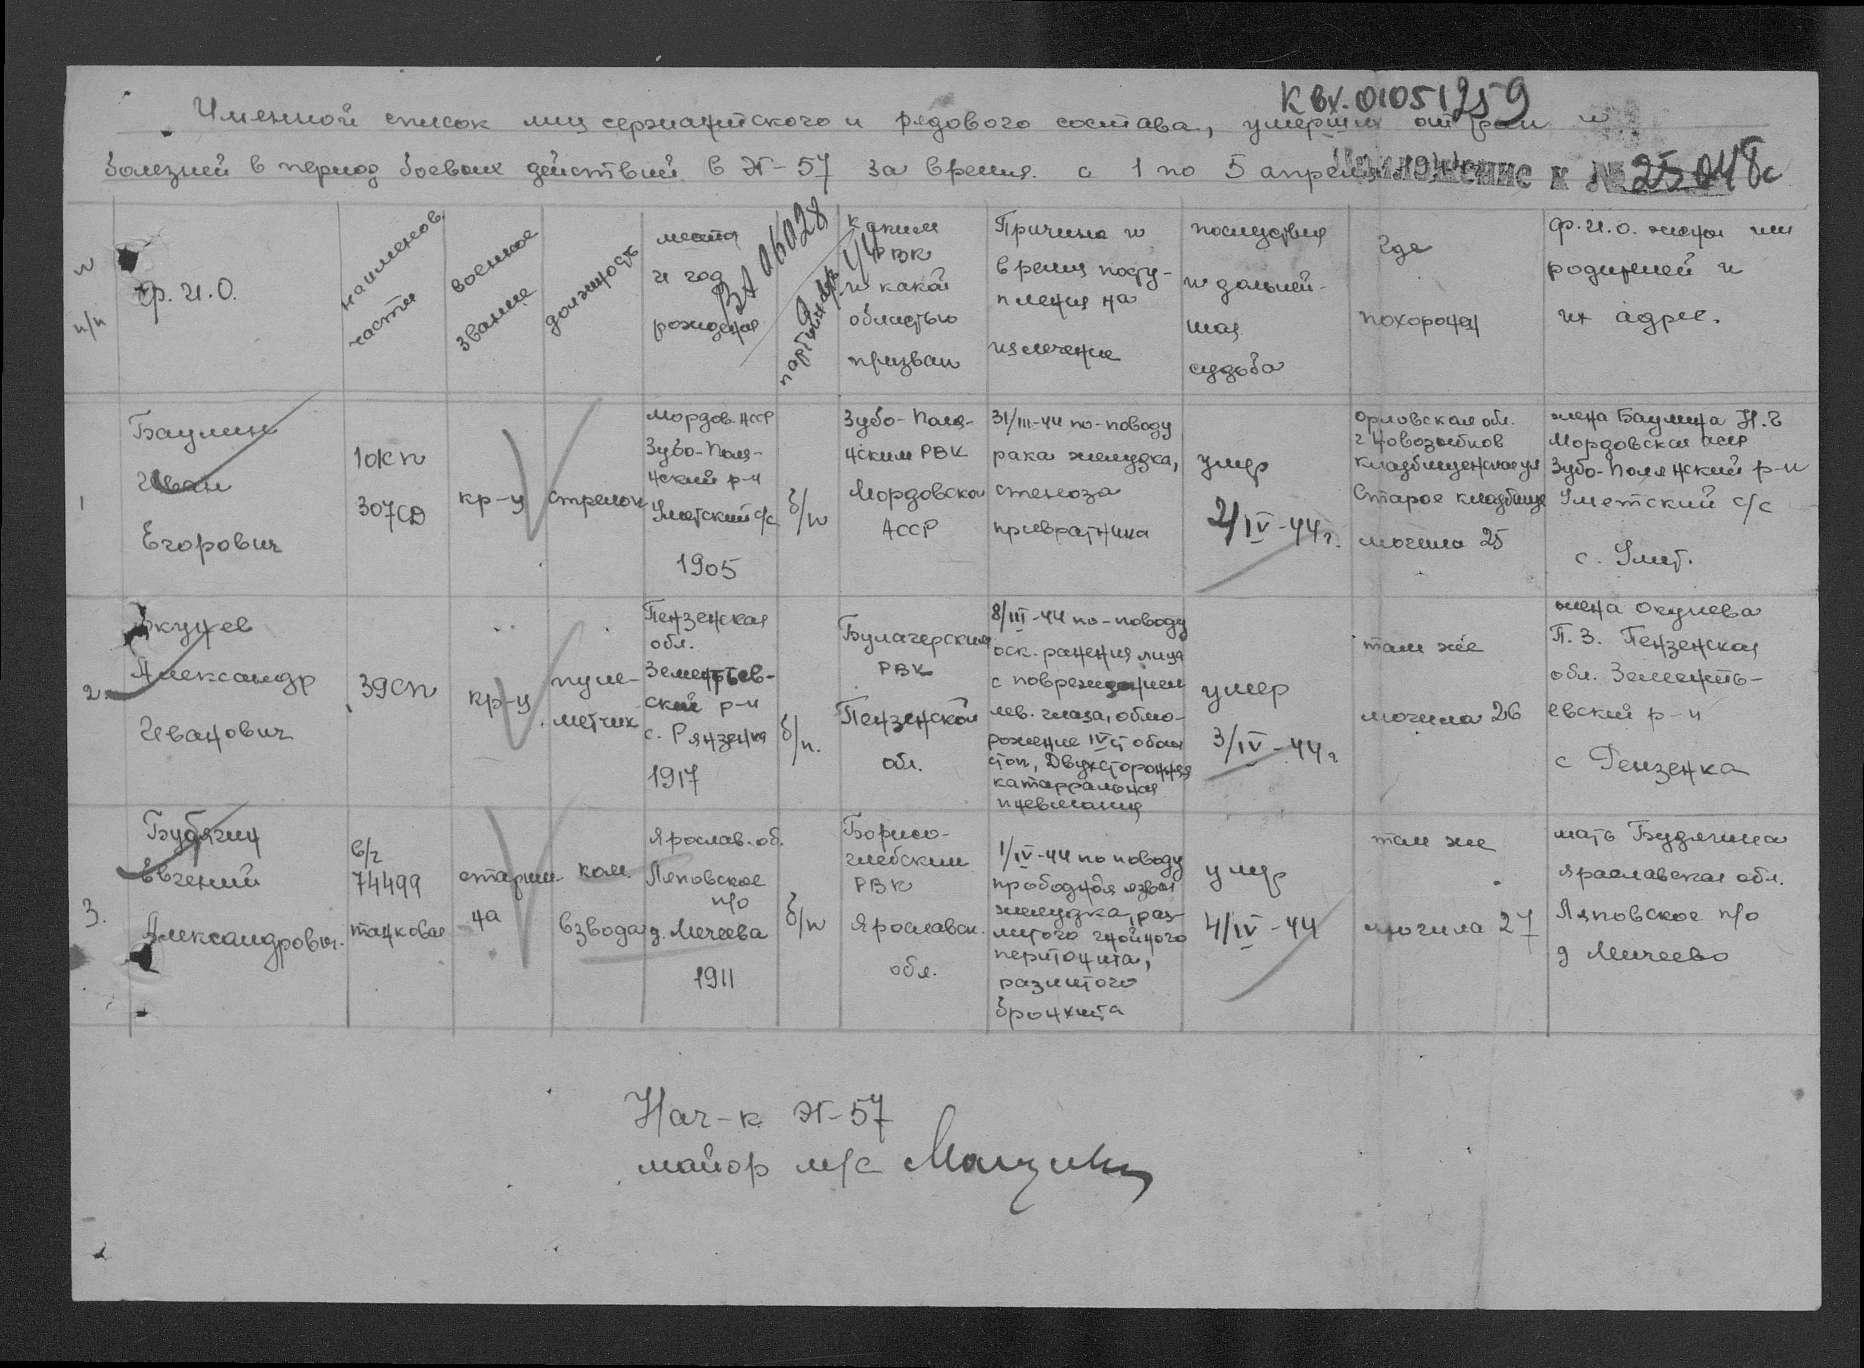 К вх. 01051259
Именной список лиц сержантского и рядового состава, умерших от ран и
болезней в период боевых действий в ЭГ-57 за время с 1 по 5 апреля
Приложение к № 25048с
ВА 06028
N п/п
ф. И. О.
наименов. части
военное звание
должность
место и год рождения
партийн.
каким РВК и какой областью призван
Причина и время поступления на излечение
последствия и дальнейшая судьба
Где похоронен
Ф. И. О. жены или родителей и их адрес.
1
Баулин
Иван
Егорович
10сп
307СД
кр-ц
стрелок
Мордов. АССР
Зубо-Поля-
нский р-н
Уметский с/с
1905
б/п
Зубо-Поля-
нским РВК
Мордовской
АССР
31/III-44 по-поводу
рака желудка,
стеноза
привратника
умер
2/IV-44г.
Орловская обл.
г Новозыбков
Кладбищенская ул
Старое кладбище
могила 25
жена Баулина Н. Е
Мордовская АССР
Зубо-Полянский р-н
Уметский с/с
с. Умет.
2
Окунев
Александр
Иванович
39сп
кр-ц
пуле-
метчик
Пензенская
обл.
Земетьев-
ский р-н
с. Рянзенка
1917
б/п.
РВК
Пензенской
обл.
8/III-44 по-поводу
оск. ранения лица
с повреждением
лев. глаза, обмо-
рожение IV ст обоих
стоп, Двухсторонняя
катарральная
пневмония
умер
3/IV-44г
там же
могила 26
жена Окунева
П. З. Пензенская
обл. Зементь-
евский р-н
с Рензенка
3.
Будягин
Евгений
Александрович.
в/ч
74499
танковая
старши-
на
ком.
взвода
Ярослав. об.
Ляповское
п/о
д. Мичеева
1911
б/п
Борисо-
глебским
РВК
Ярославск.
обл.
1/IV-44 по поводу
прободной язвы
желудка, раз-
литого гнойного
перитонита,
разлитого
бронхита
умер
4/IV-44
там же
могила 27
мать Будягина
Ярославская обл.
Ляповское п/о
д Мичеево
Нач-к ЭГ-57
майор м/с